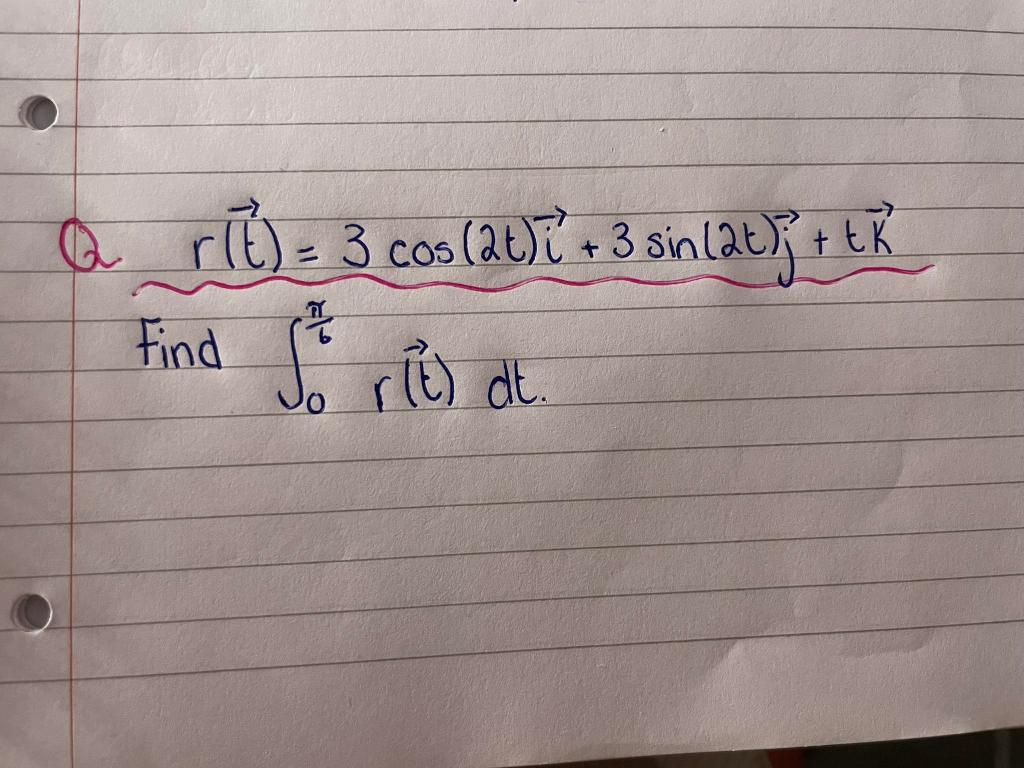 Q r(t⃗) = 3 cos(2t)i⃗ + 3 sin(2t)j⃗ + tk⃗
Find ∫₀^(π/6) r(t⃗) dt.